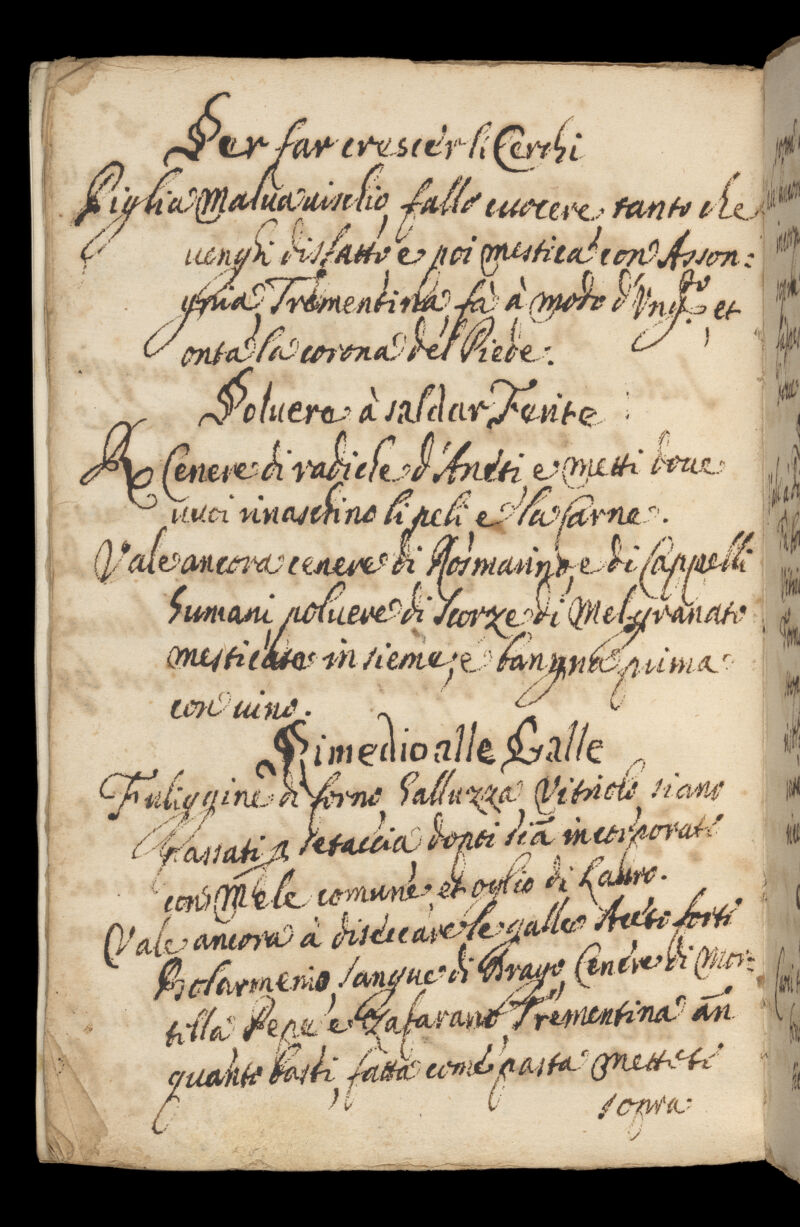 Per far crescer li Cerchi
Piglia Malvavischio, fallo cuocere, tanto che
venghi disfatto, e poi mestica con Asson:
gnia, Trementina fà à modo d'Ung.to, et
onta la corona del Piede.
Polvere à saldar Ferite
Rx Cenere di radiche d'Aneti e metti dove
vuoi rinaschino li peli e la Carne.
Vale ancora cenere di Rosmarino, e di Cappelli
humani, polvere di Scorze di Melgranato
mesticate insieme, e bangna prima
con vino.
Rimedio alle Galle
Fuliggine di forno, Galluzza, Vitriolo, siano
passati p setaccia dopoi siã incorporati
con Mele comune, et oglio di Lauro.
Vale ancora à diseccare le galle Aceto forti
Bolarmenio, sangue di Drago, Cenere di Mor:
tilla Pepe e Zafarano, Trementina añ
quanto basti, fatta come pasta metteti
sopra